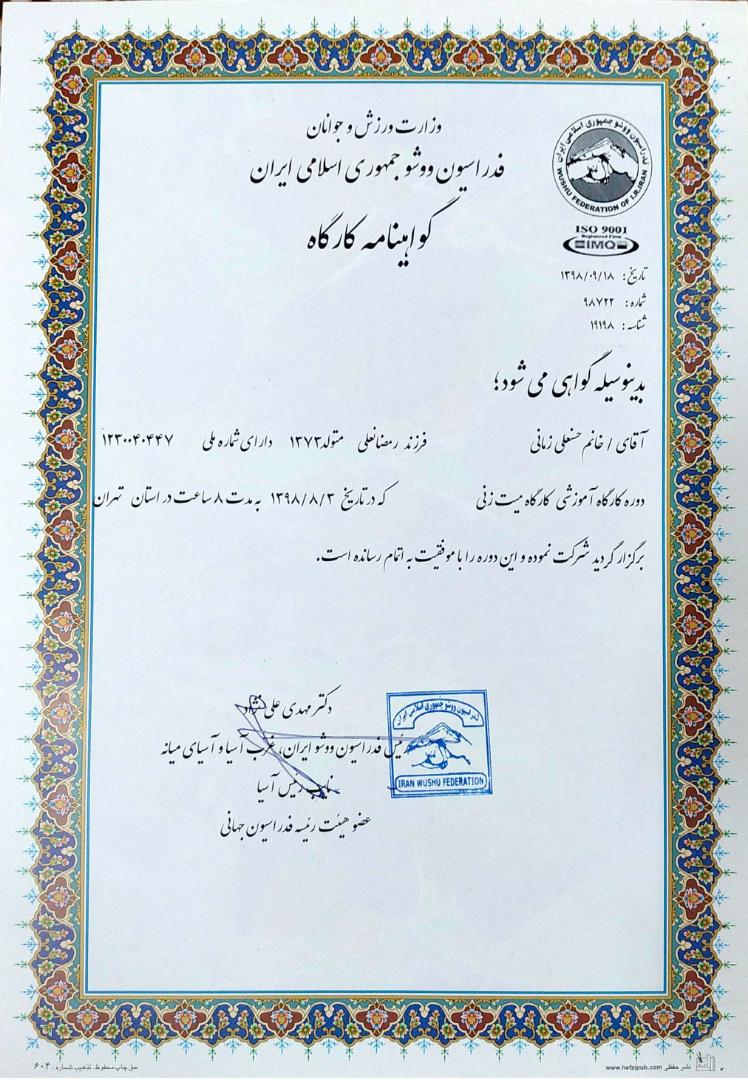 وزارت ورزش و جوانان
فدراسیون ووشو جمهوری اسلامی ایران
گواهینامه کارگاه
فدراسیون ووشو جمهوری اسلامی ایران
WUSHU FEDERATION OF I.R.IRAN
ISO 9001
Registered Firm
IMQ
تاریخ: ۱۳۹۸/۰۹/۱۸
شماره: ۹۸۷۲۲
شناسه: ۱۹۱۹۸
بدینوسیله گواهی می شود؛
آقای / خانم حسنعلی زمانی فرزند رمضانعلی متولد ۱۳۷۳ دارای شماره ملی ۱۲۳۰۰۴۰۴۴۷
دوره کارگاه آموزشی کارگاه میت زنی که در تاریخ ۱۳۹۸/۸/۳ به مدت ۸ ساعت در استان تهران
برگزار گردید شرکت نموده و این دوره را با موفقیت به اتمام رسانده است.
دکتر مهدی علی نژاد
رئیس فدراسیون ووشو ایران، غرب آسیا و آسیای میانه
نایب رئیس آسیا
عضو هیئت رئیسه فدراسیون جهانی
فدراسیون ووشو جمهوری اسلامی ایران
IRAN WUSHU FEDERATION
نشر حفظی www.hefzipub.com
حق چاپ محفوظ. تذهیب شماره: ۶۰۴